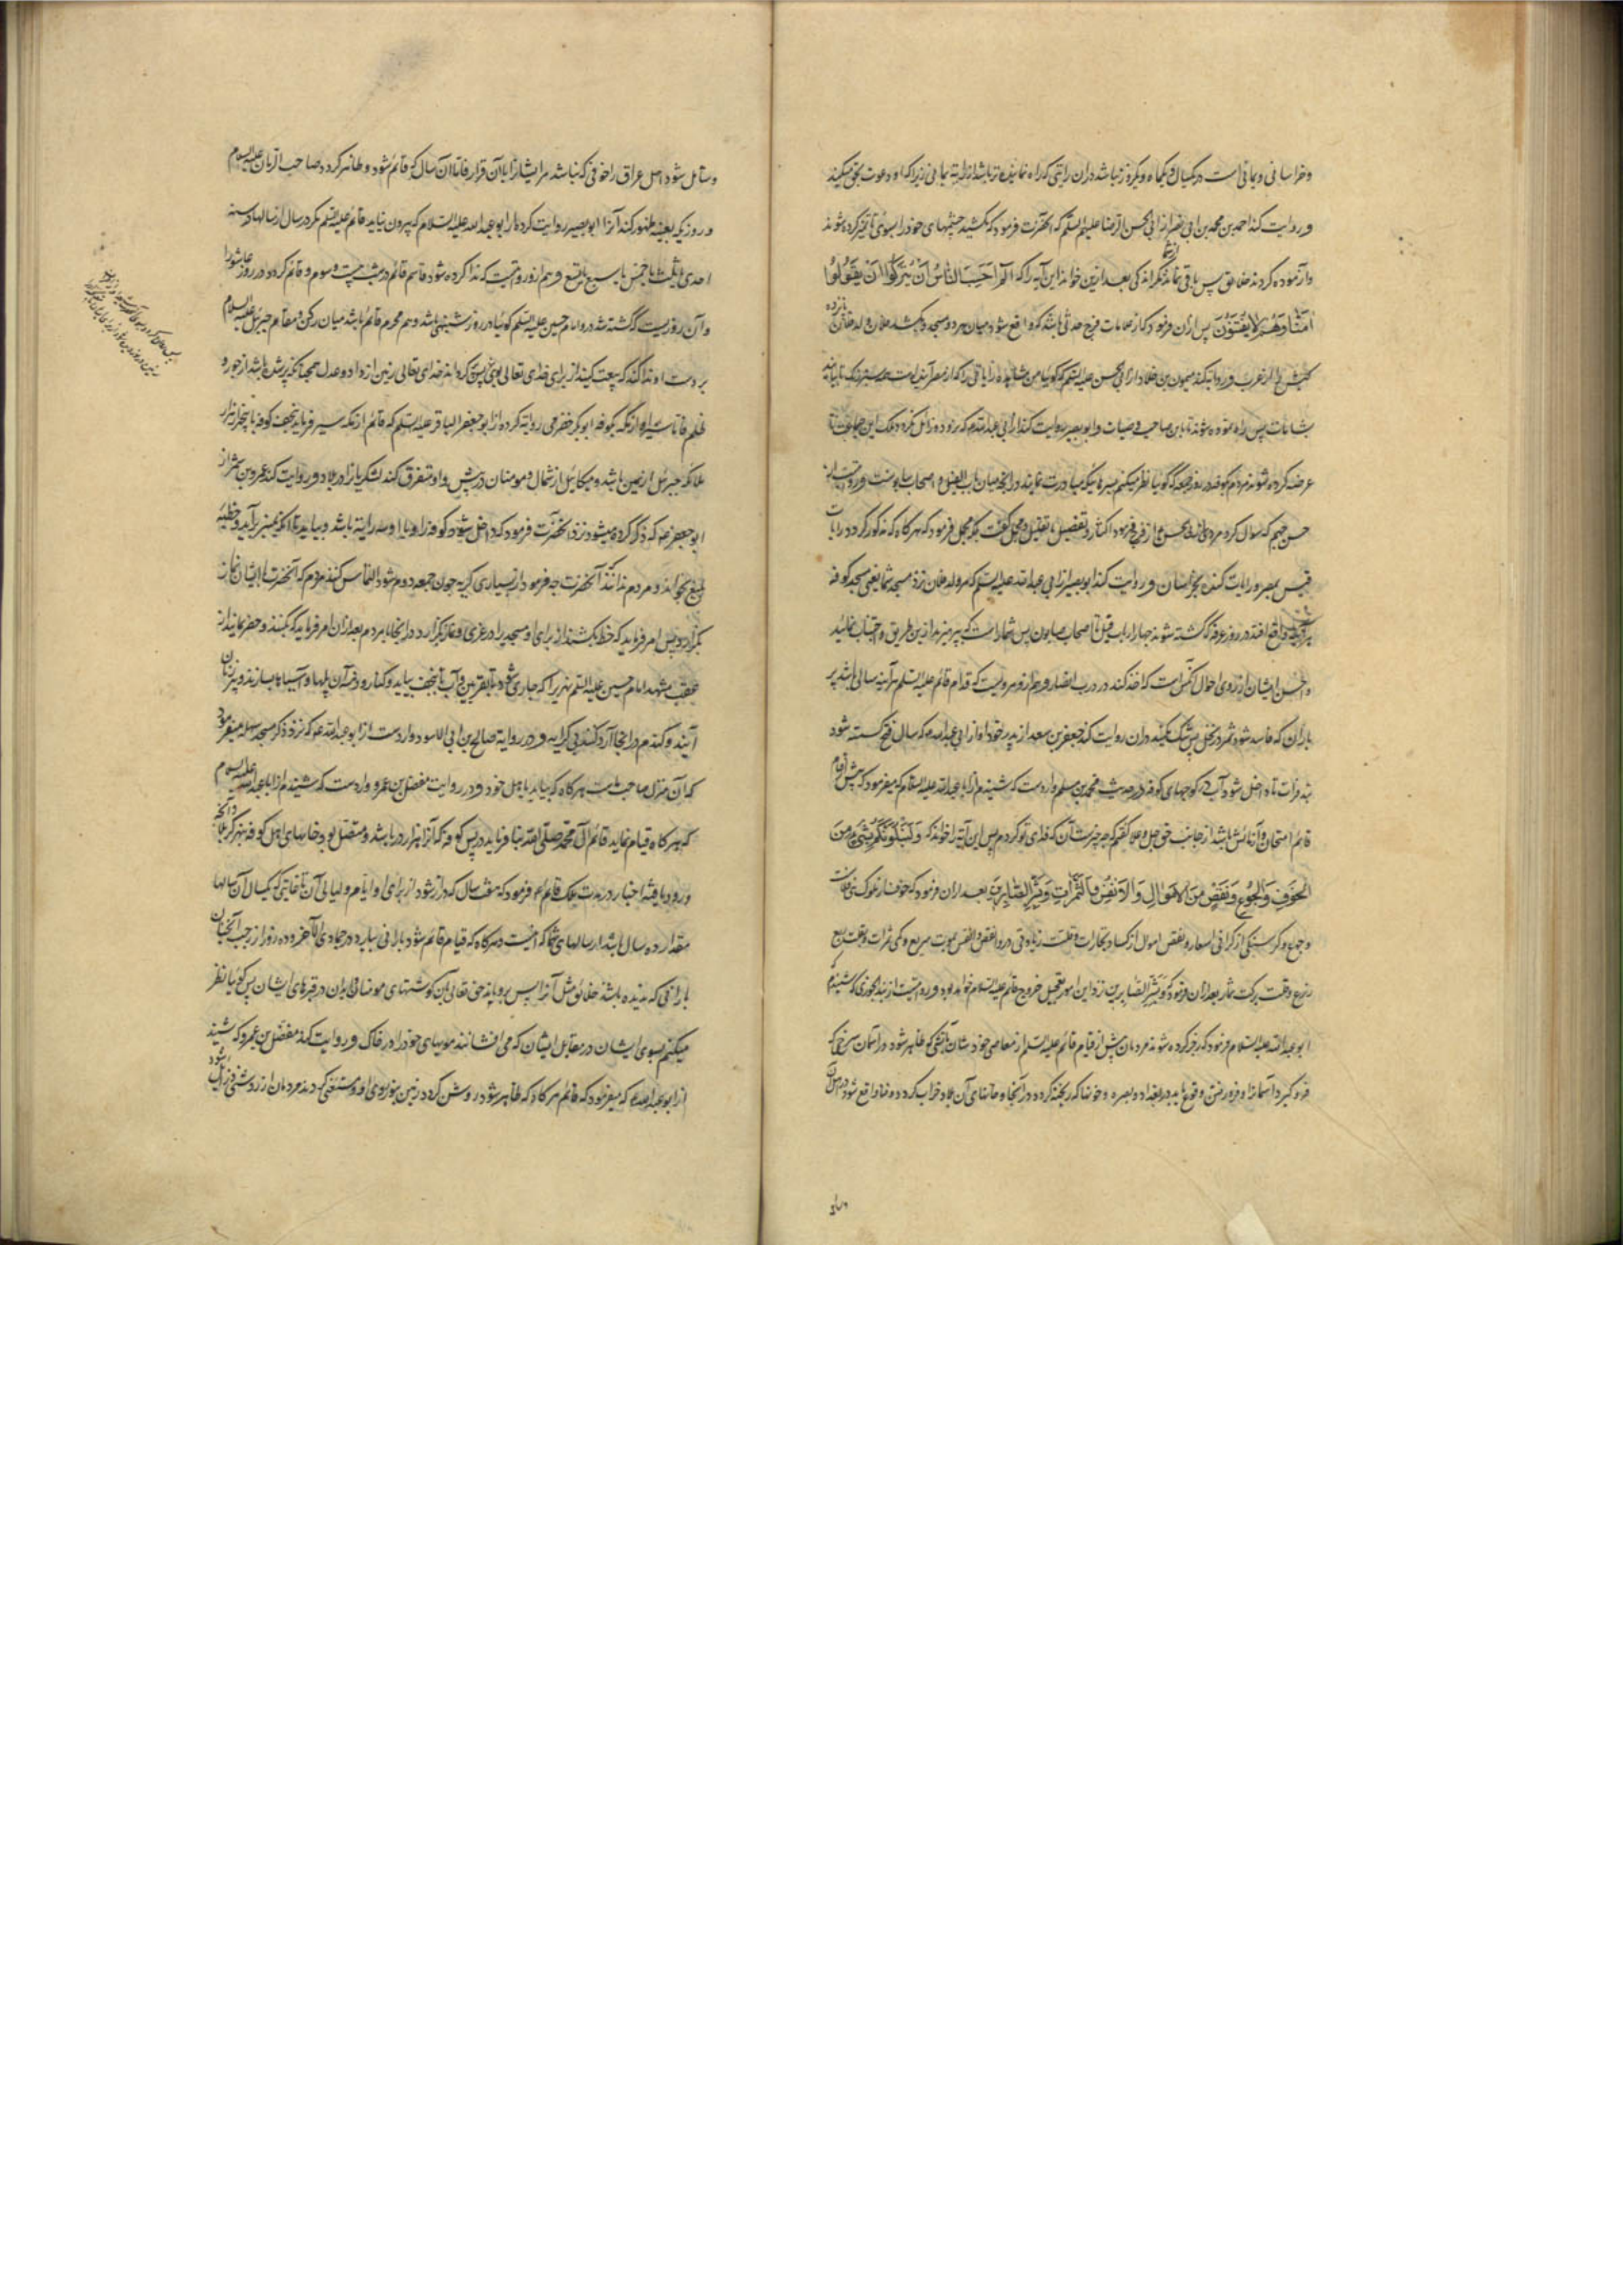 و خراسانی و یمانی است در یکسال و یکماه و یکروز نباشد دران رایتی که راه نماینده تر باشد از رایة یمانی زیرا که او دعوت بحق میکند
و روایت کند احمد بن محمد بن ابی نصر از ابی الحسن الرضا علیهم السلم که آنحضرت فرمود که نکشید چشمهای خود را بسوی تا تمیز کرده شوند
و آزموده کردند خلایق پس باقی نماند مگر اندکی بعد ازین خواند این آیه را که الٓمٓ اَحَسِبَ النّاسُ اَنْ یُتْرَکُوا اَنْ یَقُولُوا
اٰمَنّٰا وَهُمْ لاٰ یُفْتَنُونَ پس ازان فرمود که از علامات فرج حدثی باشد که واقع شود میان هر دو مسجد و بکشد فلان ولد فلان پانزده
کبش را از عرب و روایت کند میمون بن خلاد از ابی الحسن علیه السلم که گویا من مشاهده رایاتی را که از مصر آیند
شامات پس راه نموده شوند تا بابن صاحب وصیات و ابو بصیر روایت کند از ابی عبدالله که نرود و زایل نگردد ملک این جماعت تا
عرضه کرده شوند مردم کوفه در روز جمعه که گویا نظر میکنم بسرهائیکه مبادرت نمایند در آنچه میان باب الفیل و اصحاب صابونست و روایت از
حسن جهم که سوال کرد مردی از ابی الحسن از فرج فرمود اکثار و تفصیل یا تقلیل و مجمل گفت بلکه مجمل فرمود که هر گاه که مذکور گردد رایات
قیس بمصر و رایات کنده بخراسان و روایت کند ابو بصیر از ابی عبدالله علیه السلم که مر ولد فلان نزد مسجد شما یعنی مسجد کوفه
واقع افتد در روز عرفه که کشته شوند چهار هزار باب فیل تا اصحاب صابون پس شما راست که بپرهیزید ازین طریق و اجتناب نمائید
و احسن ایشان از روی احوال آنکس است که اخذ کند در درب انصار و هم از و مرویست که قدام قائم علیه السلم هر آینه سالی باشد پر
باران که فاسد شود ثمر در نخل پس شک مکنید دران روایت کند جعفر بن سعد از پدر خود او از ابی عبدالله که سال فتح گسسته شود
بند فرات تا داخل شود آب در کوچهای کوفه و در حدیث محمد بن مسلم واردست که شنیدم از ابا عبدالله علیه السلام که میفرمود که پیش از قیام
قائم امتحان و آزمائش باشد از جانب حق جل و علا گفتم که چه چیز ست آن که فدای تو گردم پس این آیه را خواند که وَلَنَبْلُوَنَّکُمْ بِشَیْءٍ مِنَ
الْخَوْفِ وَالْجُوعِ وَنَقْصٍ مِنَ الْاَمْوٰالِ وَالْاَنْفُسِ وَالثَّمَرٰاتِ وَبَشِّرِ الصّٰابِرِینَ بعد ازان فرمود که خوف از ملوک بنی فلانست
و جوع و گرسنگی از گرانی اسعار و نقص اموال از کساد تجارات و قلت زیادتی در و نقص نفس بموت سریع و کمی ثمرات و قلت ریع
زرع و قلت برکت ثمار بعد ازان فرمود که وبشر الصابرین نزد این امور بتعجیل خروج قائم علیه السلام خواهد بود و روایت از که شنیدم
ابو عبدالله علیه السلام فرمود که زجر کرده شوند مردمان پیش از قیام قائم علیه السلم از معاصی خود شان بآتشی که ظاهر شود در آسمان سرخی که
فرو گیرد آسمانرا و فرو رفتن وقوع یابد در بغداد و بصره و خونها که ریخته گردد در آنجا و خانهای آن بلاد خراب گردد و فنا واقع شود در اهل آن
و شامل شود اهل عراق را خوفی که نباشد مر ایشانرا بآن قرار فاما آن سال که قائم شود و ظاهر گردد صاحب الزمان علیه السلام
و روزیکه بعینه ظهور کند آنرا ابو بصیر روایت کرده از ابو عبدالله علیه السلام که بیرون نیاید قائم علیه السلم مگر در سال از سالها در سنه
احدی یا ثلث یا خمس یا سبع یا تسع و هم ازو روایتست که ندا کرده شود قائم در شب بیست و سوم و قائم گردد در روز عاشورا
و آن روزیست که کشته شد درو امام حسین علیه السلم گویا در روز شنبهی باشد دهم محرم قائم باشد میان رکن و مقام جبرئیل علیه السلام
بر دست او ندا کند که بیعت کنید از برای خدای تعالی خدای تعالی زمین از داد و عدل همچنانکه پر شده باشد از جور و
ظلم فاما سیر او از مکه بکوفه ابو بکر حضرمی روایة کرده از ابو جعفر الباقر علیه السلم که قائم از مکه سیر فرماید بنجف کوفه با پنج هزار
ملائکه جبرئیل از یمین باشد و میکائیل از شمال و مومنان در پیش و او متفرق کند لشکریانرا در بلاد و روایت کند عمرو بن شمر از
ابو جعفر که ذکر کرده میشود نزد آنحضرت فرمود که داخل شود کوفه را و با او سه رایة باشد و بیاید تا آنکه بمنبر برآید و خطبه
بلیغ بخواند و مردم ندانند که آنحضرت چه فرمود از بسیاری گریه چون جمعه دوم شود التماس کنند مردم که آنحضرت با ایشان نماز
بگزارد پس امر فرماید که خط بکشند از برای او مسجد را در غری و نماز بگزارد در آنجا با مردم بعد ازان امر فرماید که بکنند و حفر نمایند از
عقب مشهد امام حسین علیه السلم نهری را که جاری شود تا بغریین و آب تا بنجف بیاید و کنار رود خانه آن پلها و آسیاها بسازند و پیرزنان
آیند و گندم در آنجا آرد کنند بی کرایه و در روایة صالح بن ابی الاسود واردست از ابو عبدالله که نزد ذکر مسجد سهله میفرمود
که آن منزل صاحب ماست هرگاه که بیاید باهل خود و در روایت مفضل بن عمرو واردست که شنیدم از ابا عبدالله علیه السلام
که هر گاه قیام نماید قائم آل محمد صلی الله بنا فرماید در پس کوفه که آنرا هزار در باشد و متصل بود خانهای اهل کوفه بنهر کربلا
و ورود یافته اخبار در مدت ملک قائم فرمود که هفت سال که دراز شود از برای او ایام و لیالی آن تا غایتی که یکسال آن سالها
مقدار ده سال باشد از سالهای شما که اینست و هرگاه که قیام قائم شود بارانی ببارد در جمادی الآخر و ده روز از رجب آنچنان
بارانی که ندیده باشند خلائق مثل آنرا پس برویاند حق تعالی بآن گوشتهای مومنان و ابدان در قبرهای ایشان پس گویا نظر
میکنم بسوی ایشان در مقابل ایشان که می افشانند مویهای خود را از خاک و روایت کند مفضل بن عمرو که شنید
از ابو عبدالله که میفرمود که قائم هر گاه که ظاهر شود روشن گردد زمین بنور روی او و مستغنی گردند مردمان از روشنی و زایل شود